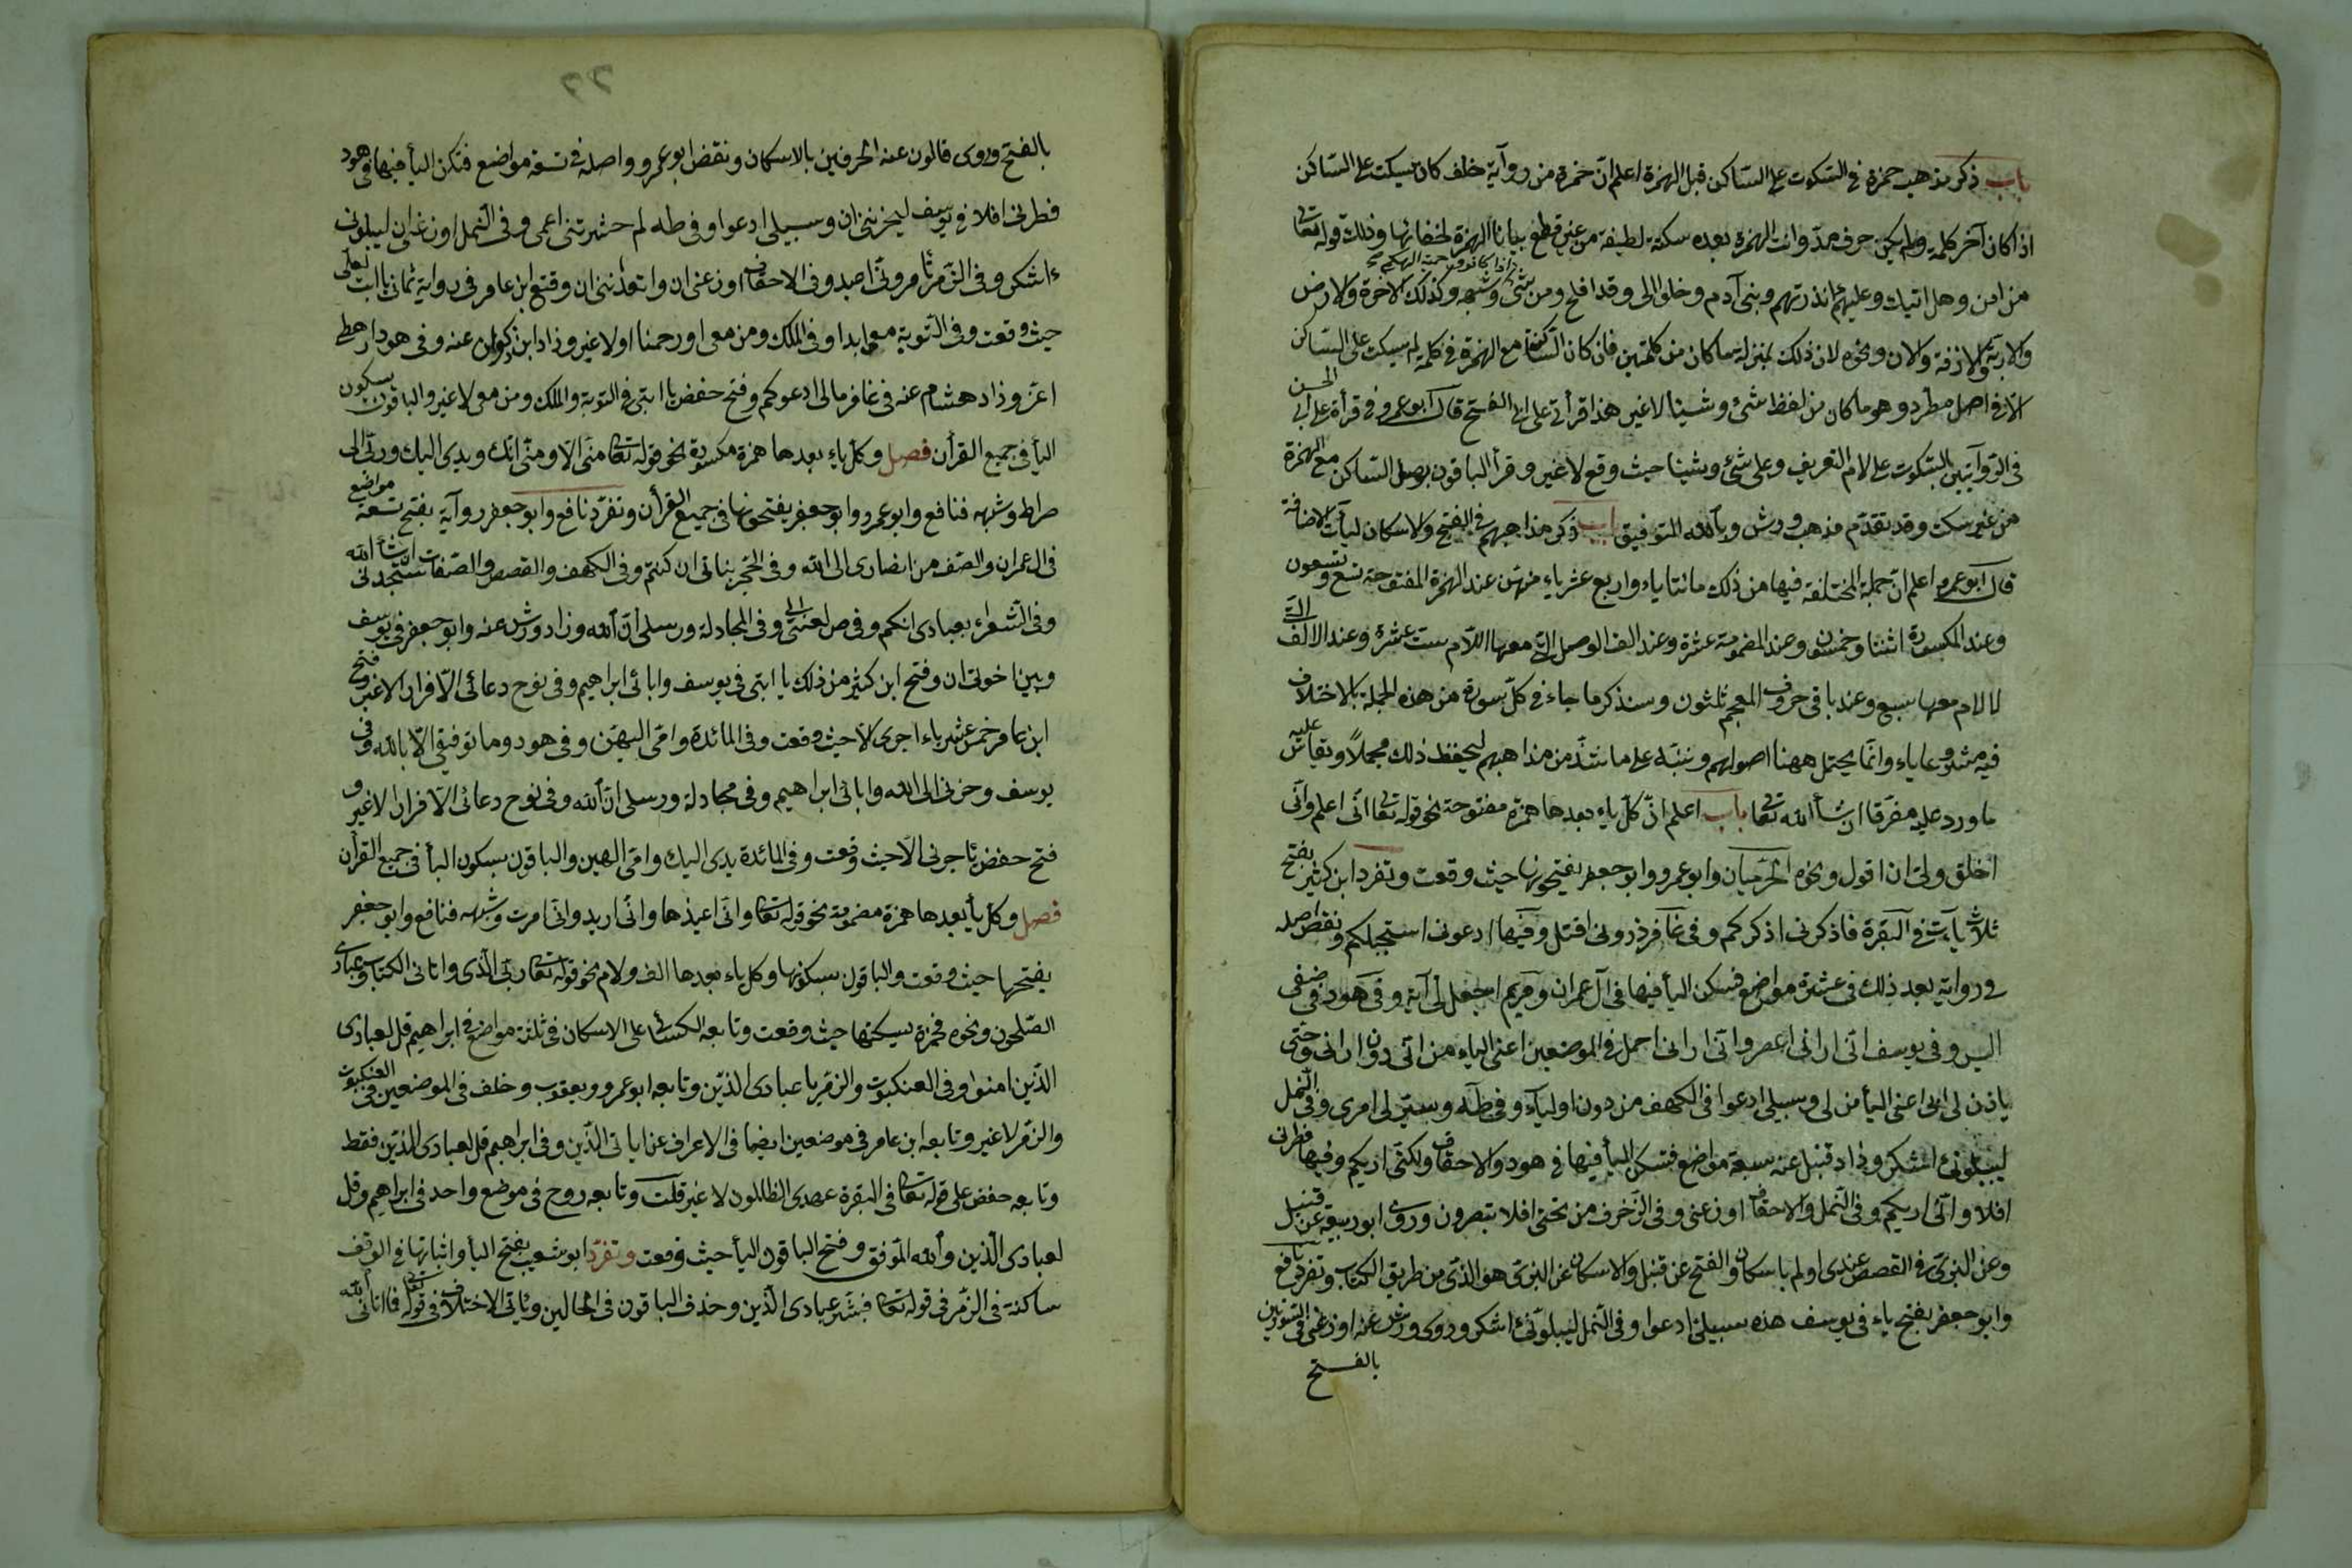 باب ذكر مذهب حمزة في السكوت على الساكن قبل الهمزة اعلم انّ حمزة من روآية خلف كان يسكت على الساكن
اذا كان آخر كلمة ولم يكن حرف مدّ واتت الهمزة بعده سكتة لطيفة من غير قطع بيانا للهمزة لخفائها وذلك قوله تعالى
من امن وهل اتيك وعليهم ءانذرتهم وبنى آدم وخلوا الى وقد افلح ومن شئ وشبهه وكذلك الآخرة والارض
والازفة والان ونحوه لان ذلك بمنزلة ما كان من كلمتين فان كان الساكن مع الهمزة في كلمة لم يسكت على الساكن
الا في اصل مطرد وهو ما كان من لفظ شئ وشيئا لا غير هذا قرأتي على ابى الفتح قال ابو عمرو في قرأة على ابى الحسن
في الروآيتين بالسكوت على لام التعريف وعلى شئ وشيئا حيث وقع لا غير وقرأ الباقون بوصل الساكن مع الهمزة
من غير سكت وقد تقدّم مذهب ورش وبالله التوفيق باب ذكر مذاهبهم في الفتح والاسكان ليآت الاضافة
قال ابو عمرو اعلم انّ جملة المختلفة فيها من ذلك مائتا ياء واربع عشر ياء منهن عند الهمزة المفتوحة تسع وتسعون
وعند المكسورة اثنتا وخمسون وعند المضمومة عشرة وعند الف الوصل التى معها اللام ست عشرة وعند الالف التى
لا لام معها سبع وعند باقى حروف المعجم ثلثون وسنذكر ما جاء في كلّ سورة من هذه الجملة بالاختلاف
فيه مشروعا ياء ياء وانّما يحتمل ههنا اصولهم وننبّه على ما شذّ من مذاهبهم ليحفظ ذلك مجملاً ويقاس عليه
ما ورد عليه مفرقا ان شأ الله تعالى باب اعلم انّ كلّ ياء بعدها همزة مفتوحة نحو قوله تعالى انّى اعلم وانّى
اخلق ولى ان اقول ونحوه الحرميان وابو عمرو وابو جعفر يفتحونها حيث وقعت وتفرد ابن كثير بفتح
ثلاث يآت في البقرة فاذكرونى اذكركم وفى غافر ذرونى اقتل وفيها ادعونى استجب لكم ونقض اصله
في روايته بعد ذلك في عشرة مواضع فسكن اليأ فيها في آل عمران ومريم اجعل لى آية وفى هود في ضيفى
اليس وفى يوسف انّى ارانى اعصر وانّى ارانى احمل في الموضعين اعنى الياء من انّى دون ارانى وحتى
ياذن لى ابى اعنى اليأ من لى وسبيلى ادعوا في الكهف من دونى اوليآء وفى طه ويسّر لى امرى وفى النّمل
ليبلونى ءاشكر وزاد قنبل عنه سبعة مواضع فسكن اليأ فيها في هود والاحقاف ولكنّى اريكم وفيها فطرنى
افلا وانّى اريكم وفى النّمل والاحقاف اوزعنى وفى الزّخرف من تحتى افلا تبصرون وروى ابو ربيعة عن قنبل
وعن البزى في القصص عندى اولم باسكان والفتح عن قنبل والاسكان عن البزى هو الذى من طريق الكتاب وتفرد نافع
وابو جعفر بفتح ياء في يوسف هذه سبيلى ادعوا وفى النّمل ليبلونى ءاشكر وروى ورش عنه اوزعنى في السورتين
بالفتح
بالفتح وروى قالون عنه الحرفين بالاسكان ونقض ابو عمرو واصله في تسعة مواضع فسكن اليأ فيها في هود
فطرنى افلا في يوسف ليحزننى ان وسبيلى ادعوا وفى طه لم حشرتنى اعمى وفى النّمل اوزعنى ان ليبلونى
ءاشكر وفى الزّمر تأمرونّى اعبد وفى الاحقاف اوزعنى ان واتعدننى ان وفتح ابن عامر في رواية ثمانى ياءات لعلى
حيث وقعت وفى التوبة معى ابدا وفى الملك ومن معى او رحمنا لا غير وزاد ابن ذكوان عنه وفى هود ارهطى
اعزّ وزاد هشام عنه في غافر مالى ادعوكم وفتح حفص يا ابتى في التوبة والملك ومن معى لا غير والباقون بسكون
اليأ في جميع القرأن فصل وكلّ ياء بعدها همزة مكسورة نحو قوله تعالى منّى الّا ومنّى انّك ويدى اليك وربّى الى
صراط وشبهه فنافع وابو عمرو وابو جعفر يفتحونها في جميع القرأن وتفرّد نافع وابو جعفر روآية بفتح تسعة مواضع
في ال عمران والصّف من انصارى الى الله وفى الحجر بناتى ان كنتم وفى الكهف والقصص والصّفات ستجدنى ان شأ الله
وفى الشّعراء بعبادى انّكم وفى ص لعنتى الى وفى المجادلة ورسلى انّ الله وزاد ورش عنه وابو جعفر في يوسف
وبين اخوتى ان وفتح ابن كثير من ذلك يا ابتى في يوسف وابائى ابراهيم وفى نوح دعائى الّا فرارا لا غير وفتح
ابن عامر خمس عشر ياء اجرى الّا حيث وقعت وفى المائدة وامّى الهين وفى هود وما توفيقى الّا بالله وفى
يوسف وحزنى الى الله وابائى ابراهيم وفى مجادلة ورسلى انّ الله وفى نوح دعائى الّا فرارا لا غير و
فتح حفص يا اجرى الّا حيث وقعت وفى المائدة يدى اليك وامّى الهين والباقون بسكون اليأ في جميع القرأن
فصل وكلّ يأ بعدها همزة مضمومة نحو قوله تعالى وانّى اعيذها وانّى اريد وانّى امرت وشبهه فنافع وابو جعفر
يفتحها حيث وقعت والباقون بسكونها وكل ياء بعدها الف ولام نحو قوله تعالى ربّى الّذى واتانى الكتاب وعبادى
الصّلحون ونحوه فحمزة يسكنها حيث وقعت وتابعه الكسائى على الاسكان في ثلثة مواضع في ابراهيم قل لعبادى
الذّين امنوا وفى العنكبوت والزمر يا عبادى الذّين وتابعه ابو عمرو ويعقوب وخلف في الموضعين في العنكبوت
والزّمر لا غير وتابعه ابن عامر في موضعين ايضا في الاعراف عن اياتى الّذين وفى ابراهيم قل لعبادى الذّين فقط
وتابعه حفص على قوله تعالى في البقرة عهدى الظالمون لا غير قلت وتابعه روح في موضع واحد في ابراهيم وقل
لعبادى الّذين والله الموفق وفتح الباقون اليأ حيث وقعت وتفرّد ابو شعيب بفتح اليأ واثباتها في الوقف
ساكنة في الزّمر في قوله تعالى فبشّر عبادى الّذين وحذف الباقون في الحالين ويأتى الاختلاف في قوله تعالى فما اتانى الله